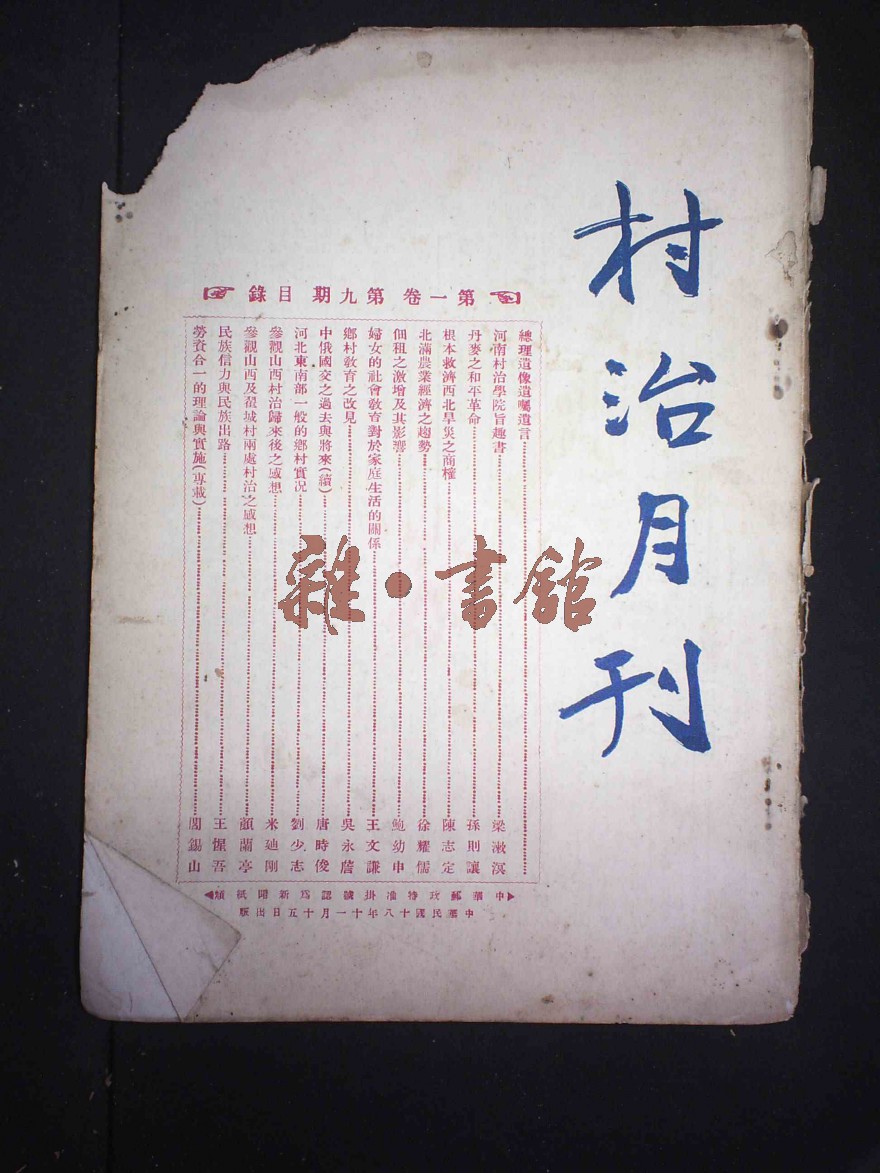 村治月刊
第一卷 第九期 目錄
總理遺像遺囑遺言
河南村治學院旨趣書 梁漱溟
丹麥之和平革命 孫則讓
根本救濟西北旱災之商榷 陳志定
北滿農業經濟之趨勢 徐耀儒
佃租之激增及其影響 鮑幼申
婦女的社會敎育對於家庭生活的關係 王文謙
鄉村敎育之改見 吳永詹
中俄國交之過去與將來(續) 唐時俊
河北東南部一般的鄉村實況 劉少志
參觀山西村治歸來後之感想 米廸剛
參觀山西及翟城村兩處村治之感想 顏蘭亭
民族信力與民族出路 王惺吾
勞資合一的理論與實施(專載) 閻錫山
中華郵政特准掛號認爲新聞紙類
中華民國十八年十一月十五日出版
雜·書館